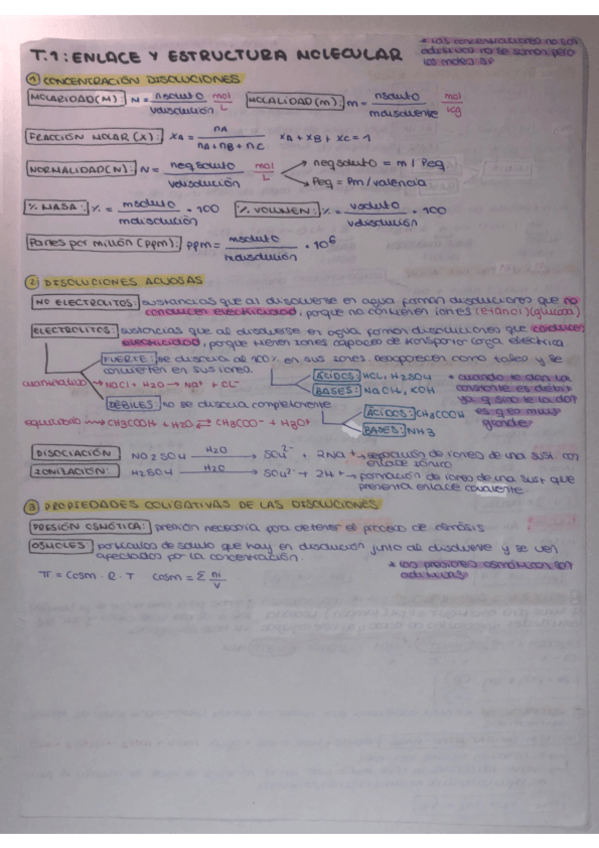 T.1: ENLACE Y ESTRUCTURA MOLECULAR
* las concentraciones no son
aditivas no se suman pero
los moles sí
① CONCENTRACIÓN DISOLUCIONES
MOLARIDAD (M): M = nsoluto / Vdisolución mol/L
MOLALIDAD (m): m = nsoluto / mdisolvente mol/kg
FRACCIÓN MOLAR (X): XA = nA / nA+nB+nC XA + XB + XC = 1
NORMALIDAD (N): N = neqsoluto / Vdisolución mol/L
neqsoluto = m / Peq
Peq = Pm / valencia
% MASA: % = msoluto / mdisolución · 100
% VOLUMEN: % = Vsoluto / Vdisolución · 100
Partes por millón (ppm): ppm = msoluto / mdisolución · 10⁶
② DISOLUCIONES ACUOSAS
NO ELECTROLITOS: sustancias que al disolverse en agua forman disoluciones que no
conducen electricidad, porque no contienen iones (etanol) (glucosa)
ELECTROLITOS: sustancias que al disolverse en agua forman disoluciones que conducen
electricidad, porque tienen iones capaces de transportar carga eléctrica
FUERTE: se disocia al 100% en sus iones. desaparecen como tales y se
convierten en sus iones.
ÁCIDOS: HCl, H2SO4
BASES: NaCH, KOH
* cuando te dan la
constante es débil
ya q sino te la da?
es q es muy
grande
NaCl + H2O → Na⁺ + Cl⁻
DÉBILES: no se disocia completamente
ÁCIDOS: CH3COOH
BASES: NH3
equilibrio → CH3COOH + H2O ⇄ CH3COO⁻ + H3O⁺
DISOCIACIÓN: Na2SO4 —H2O→ SO4²⁻ + 2Na⁺ → separación de iones de una sust. con
enlace iónico
IONIZACIÓN: H2SO4 —H2O→ SO4²⁻ + 2H⁺ → formación de iones de una sust que
presenta enlace covalente
③ PROPIEDADES COLIGATIVAS DE LAS DISOLUCIONES
PRESIÓN OSMÓTICA: presión necesaria para detener el proceso de ósmosis
OSMOLES: partículas de soluto que hay en disolución junto al disolvente y se ven
afectadas por la concentración.
* las presiones osmóticas son
aditivas
π = Cosm · R · T Cosm = Σ ni / V